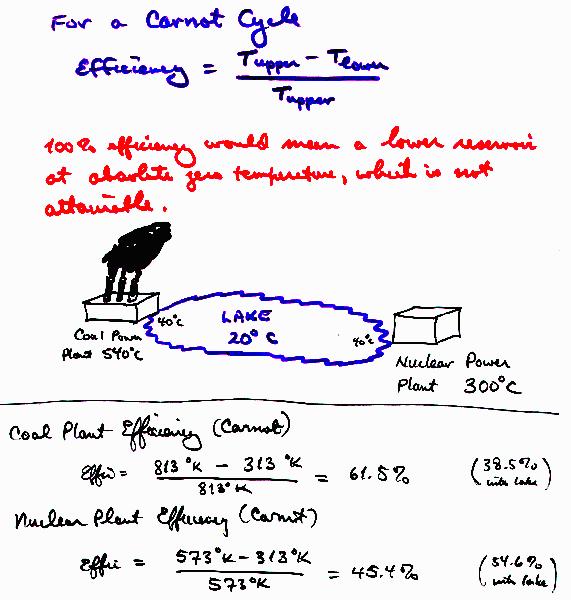 For a Carnot Cycle
Efficiency = (Tupper - Tlower) / Tupper
100% efficiency would mean a lower reservoir
at absolute zero temperature, which is not
attainable.
LAKE
20°C
40°C
40°C
Coal Power
Plant 540°C
Nuclear Power
Plant 300°C
Coal Plant Efficiency (Carnot)
Effic = (813°K - 313°K) / 813°K = 61.5% (38.5% with lake)
Nuclear Plant Efficiency (Carnot)
Effic = (573°K - 313°K) / 573°K = 45.4% (54.6% with lake)